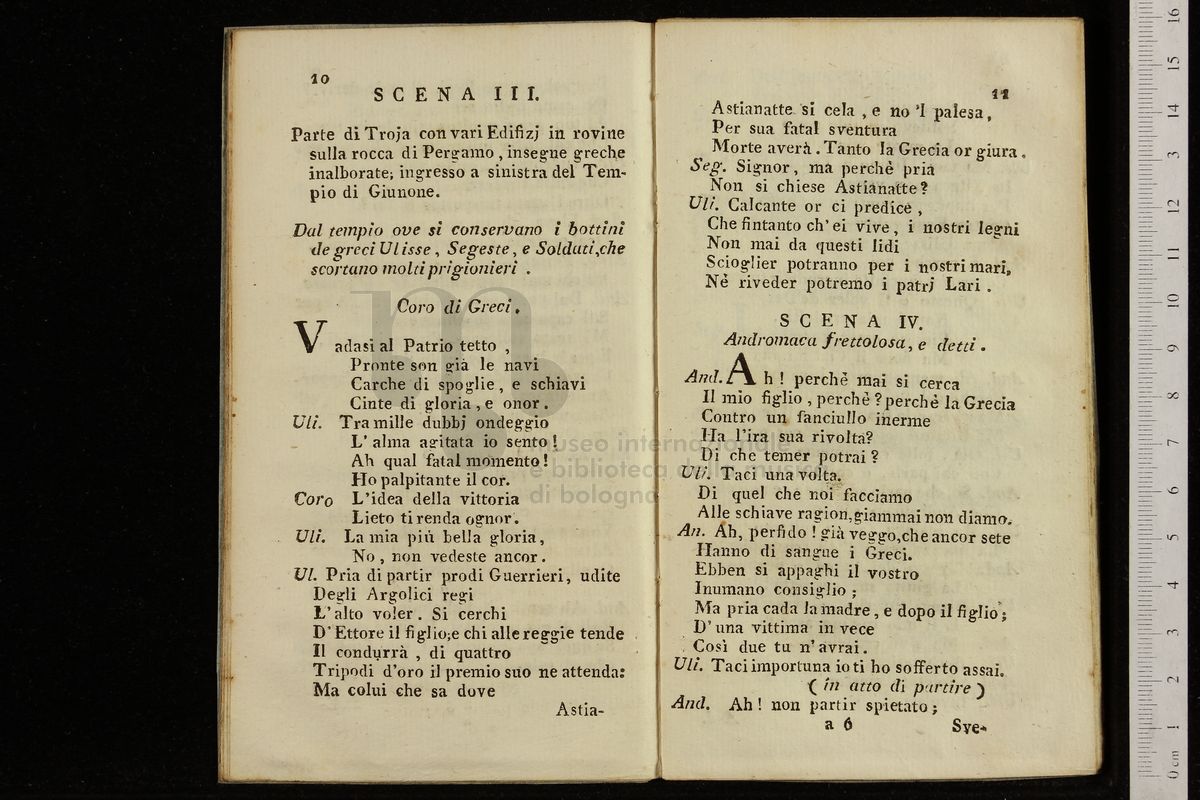 10
SCENA III.
Parte di Troja con vari Edifizj in rovine
sulla rocca di Pergamo , insegne greche
inalborate; ingresso a sinistra del Tem-
pio di Giunone.
Dal tempio ove si conservano i bottini
de greci Ulisse , Segeste , e Soldati,che
scortano molti prigionieri .
Coro di Greci.
Vadasi al Patrio tetto ,
Pronte son già le navi
Carche di spoglie , e schiavi
Cinte di gloria , e onor .
Uli. Tra mille dubbj ondeggio
L' alma agitata io sento !
Ah qual fatal momento !
Ho palpitante il cor.
Coro L'idea della vittoria
Lieto ti renda ognor.
Uli. La mia più bella gloria ,
No , non vedeste ancor .
Ul. Pria di partir prodi Guerrieri , udite
Degli Argolici regi
L'alto voler . Si cerchi
D' Ettore il figlio;e chi alle reggie tende
Il condurrà , di quattro
Tripodi d'oro il premio suo ne attenda:
Ma colui che sa dove
Astia-
11
Astianatte si cela , e no 'l palesa ,
Per sua fatal sventura
Morte averà . Tanto la Grecia or giura .
Seg. Signor , ma perchè pria
Non si chiese Astianatte ?
Uli. Calcante or ci predice ,
Che fintanto ch' ei vive , i nostri legni
Non mai da questi lidi
Scioglier potranno per i nostri mari,
Nè riveder potremo i patrj Lari .
SCENA IV.
Andromaca frettolosa , e detti .
And. Ah ! perchè mai si cerca
Il mio figlio , perchè ? perchè la Grecia
Contro un fanciullo inerme
Ha l'ira sua rivolta?
Di che temer potrai ?
Uli. Taci una volta.
Di quel che noi facciamo
Alle schiave ragion,giammai non diamo.
An. Ah, perfido ! già veggo,che ancor sete
Hanno di sangue i Greci.
Ebben si appaghi il vostro
Inumano consiglio ;
Ma pria cada la madre , e dopo il figlio ;
D' una vittima in vece
Così due tu n' avrai .
Uli. Taci importuna io ti ho sofferto assai.
( in atto di partire )
And. Ah ! non partir spietato ;
a 6
Sve-
museo internazionale
e biblioteca della musica
di bologna
0 cm 1 2 3 4 5 6 7 8 9 10 11 12 13 14 15 16